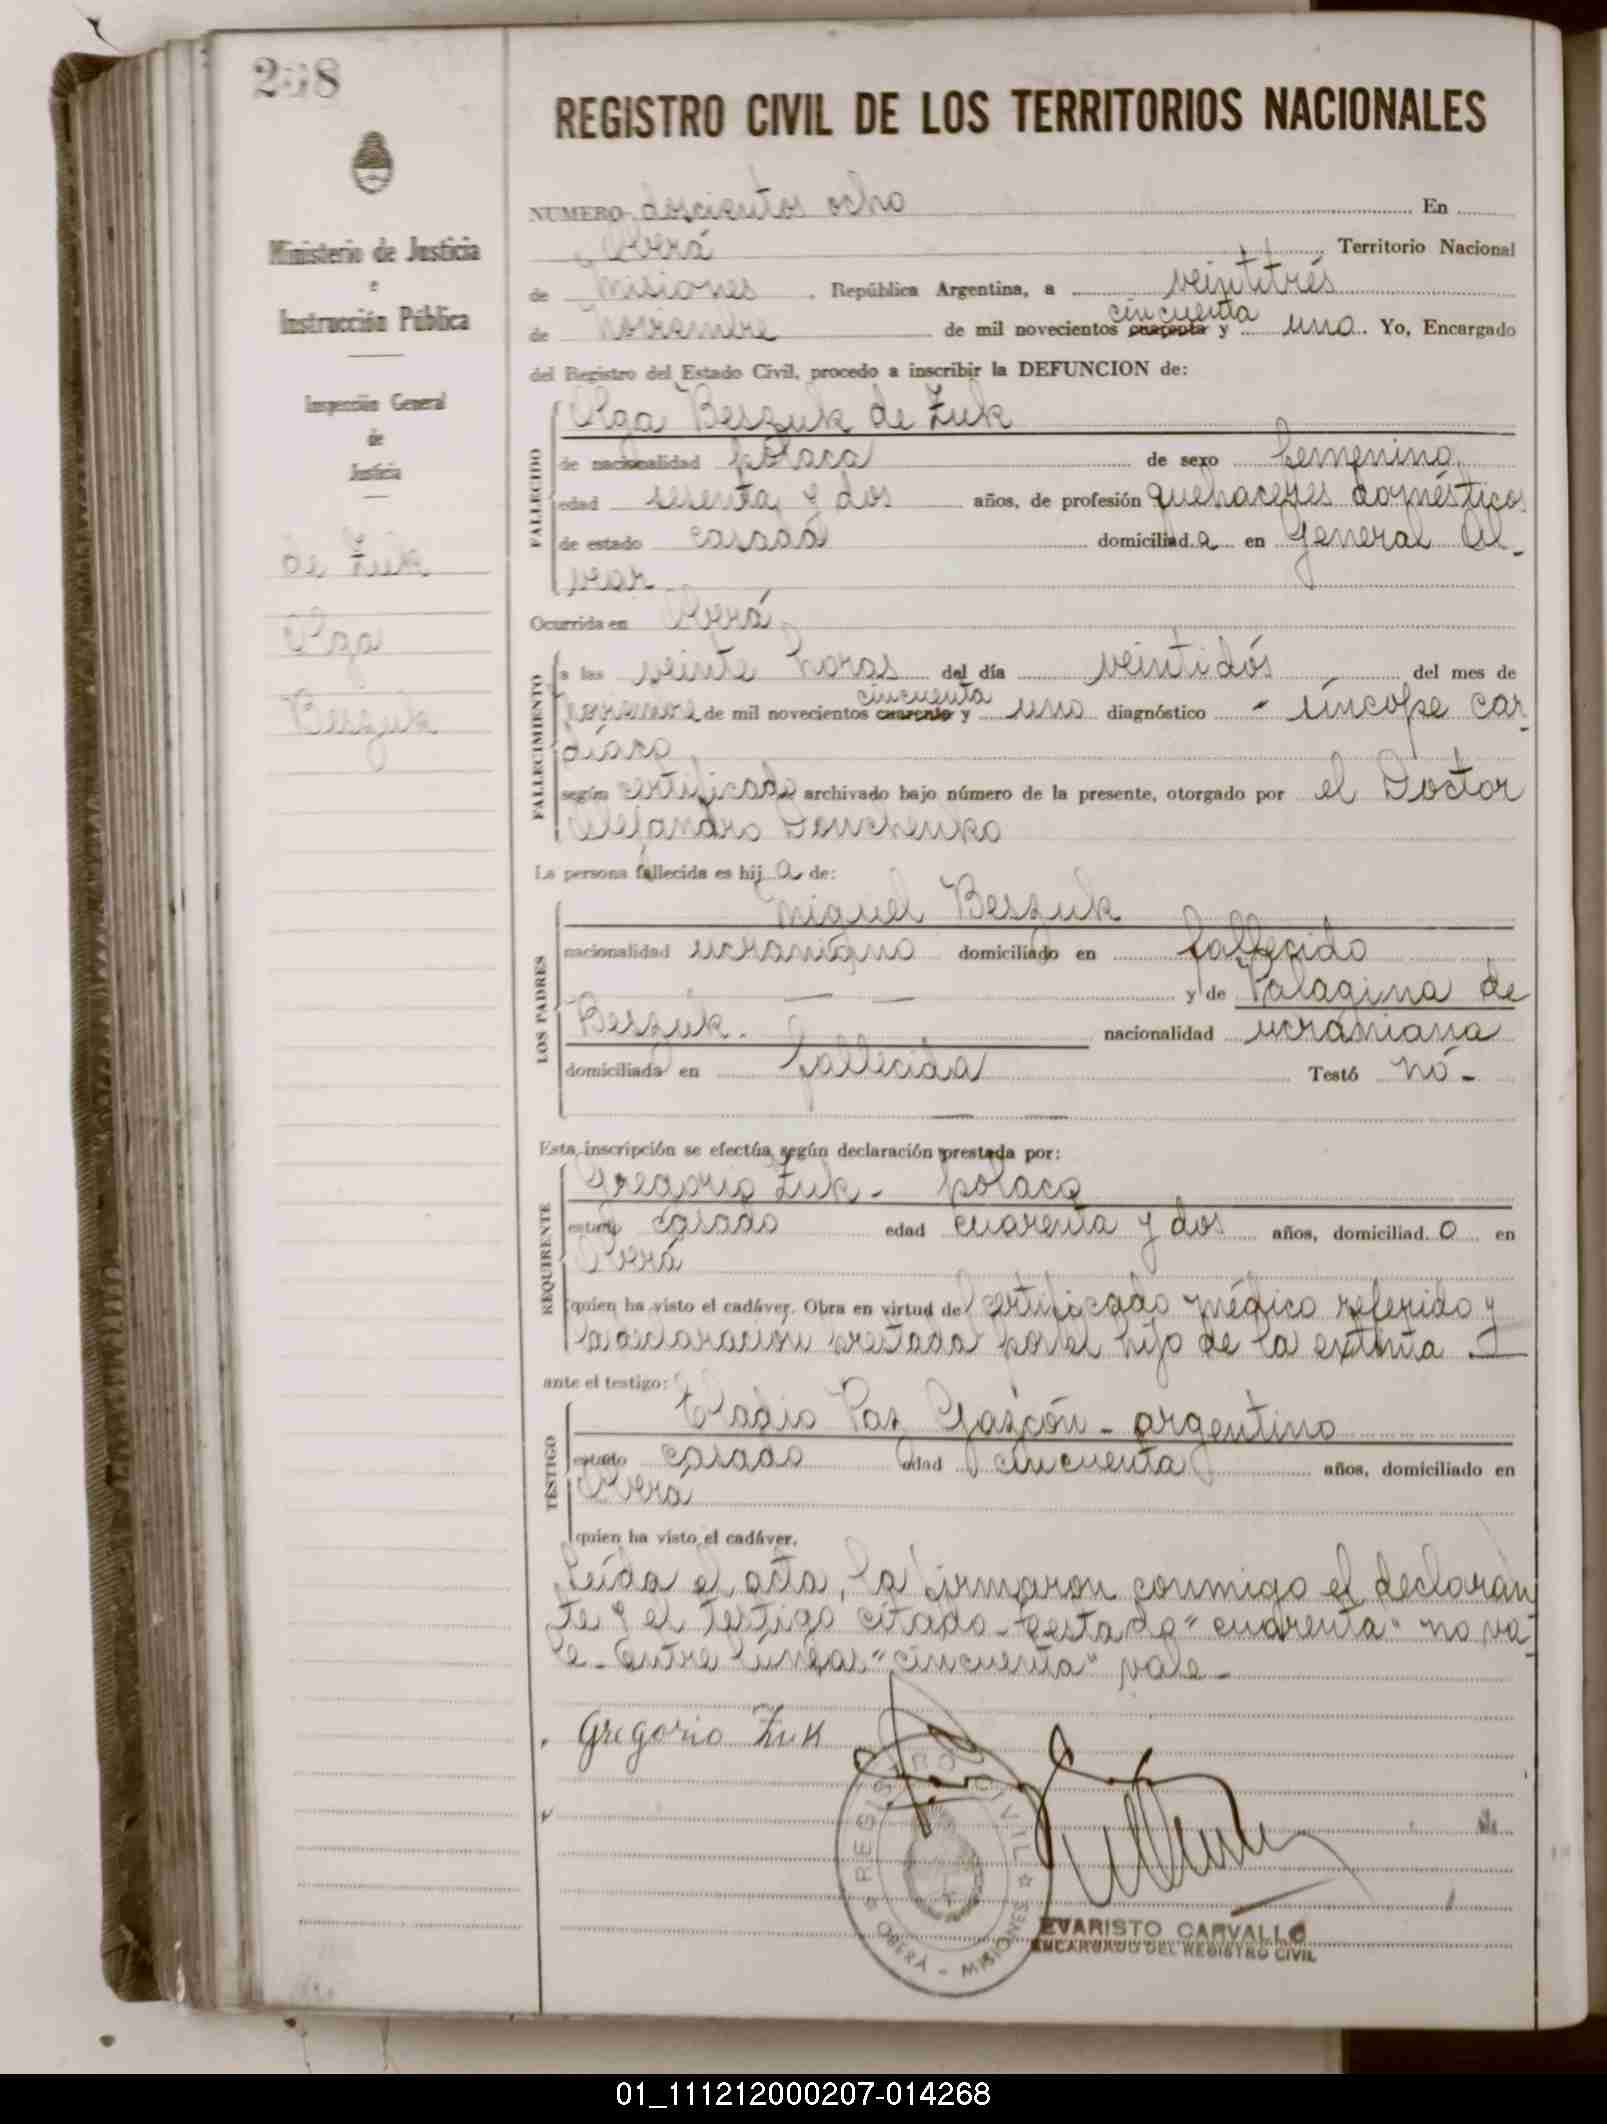 208
REGISTRO CIVIL DE LOS TERRITORIOS NACIONALES
Ministerio de Justicia
e
Instrucción Pública
Inspección General
de
Justicia
de Zuk
Olga
Beszuk
NUMERO doscientos ocho En
Oberá Territorio Nacional
de Misiones, República Argentina, a veintitrés
cincuenta
de noviembre de mil novecientos cuarenta y uno. Yo, Encargado
del Registro del Estado Civil, procedo a inscribir la DEFUNCION de:
FALLECIDO
Olga Beszuk de Zuk
de nacionalidad polaca de sexo femenino
edad sesenta y dos años, de profesión quehaceres domésticos
de estado casada domiciliad a en General Al-
vear
Ocurrida en Oberá
FALLECIMIENTO
a las veinte horas del día veintidós del mes de
cincuenta
noviembre de mil novecientos cuarenta y uno diagnóstico - síncope car-
díaco
según certificado archivado bajo número de la presente, otorgado por el Doctor
Alejandro
La persona fallecida es hij a de:
LOS PADRES
Miguel Beszuk
nacionalidad ucraniano domiciliado en fallecido
— — y de Palagina de
Beszuk. nacionalidad ucraniana
domiciliada en fallecida Testó nó-
Esta inscripción se efectúa según declaración prestada por:
REQUIRENTE
Gregorio Zuk - polaco
estado casado edad cuarenta y dos años, domiciliad o en
Oberá
quien ha visto el cadáver. Obra en virtud del certificado médico referido y
la declaración prestada por el hijo de la extinta
ante el testigo:
TESTIGO
Eladio Paz Gascón - argentino
estado casado edad cincuenta años, domiciliado en
Oberá
quien ha visto el cadáver.
Leída el acta, la firmaron conmigo el declaran
te y el testigo citado - Testado "cuarenta" no va-
le - Entre líneas "cincuenta" vale -
Gregorio Zuk
REGISTRO CIVIL
OBERÁ - MISIONES
EVARISTO CARVALLO
ENCARGADO DEL REGISTRO CIVIL
01_111212000207-014268